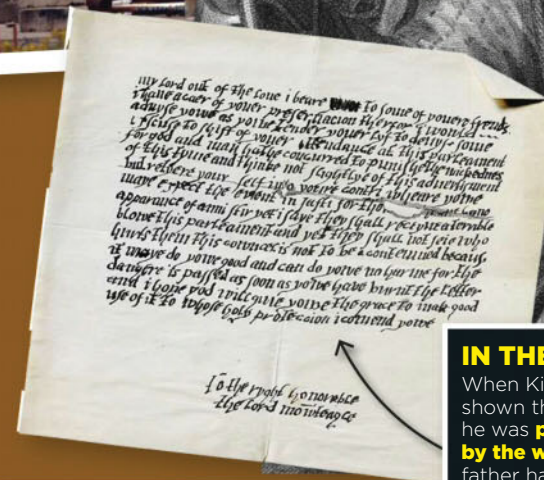 my lord out of the loue i beare To some of youere frends
i haue a caer of youer preseruacion therfor i would
aduyse yowe as yowe tender youer lyf to deuys some
excuse to shift of youer attendance at this parleament
for god and man hathe concurred to punishe the wickednes
of this tyme and thinke not slightlye of this aduertisment
but retyere youre self into youre contri wheare yowe
maye expect the event in safti for
apparance of anni stir yet i saye they shall receyve a terrible
blowe this parleament and yet they shall not seie who
hurts them this cowncel is not to be contemned because
it maye do yowe good and can do yowe no harme for the
dangere is passed as soon as yowe have burnt the letter
and i hope god will give yowe the grace to mak good
use of it to whose holy proteccion i comend yowe
To the ryght honorable
the lord mowteagle
IN THE
When Ki
shown th
he was p
by the w
father ha